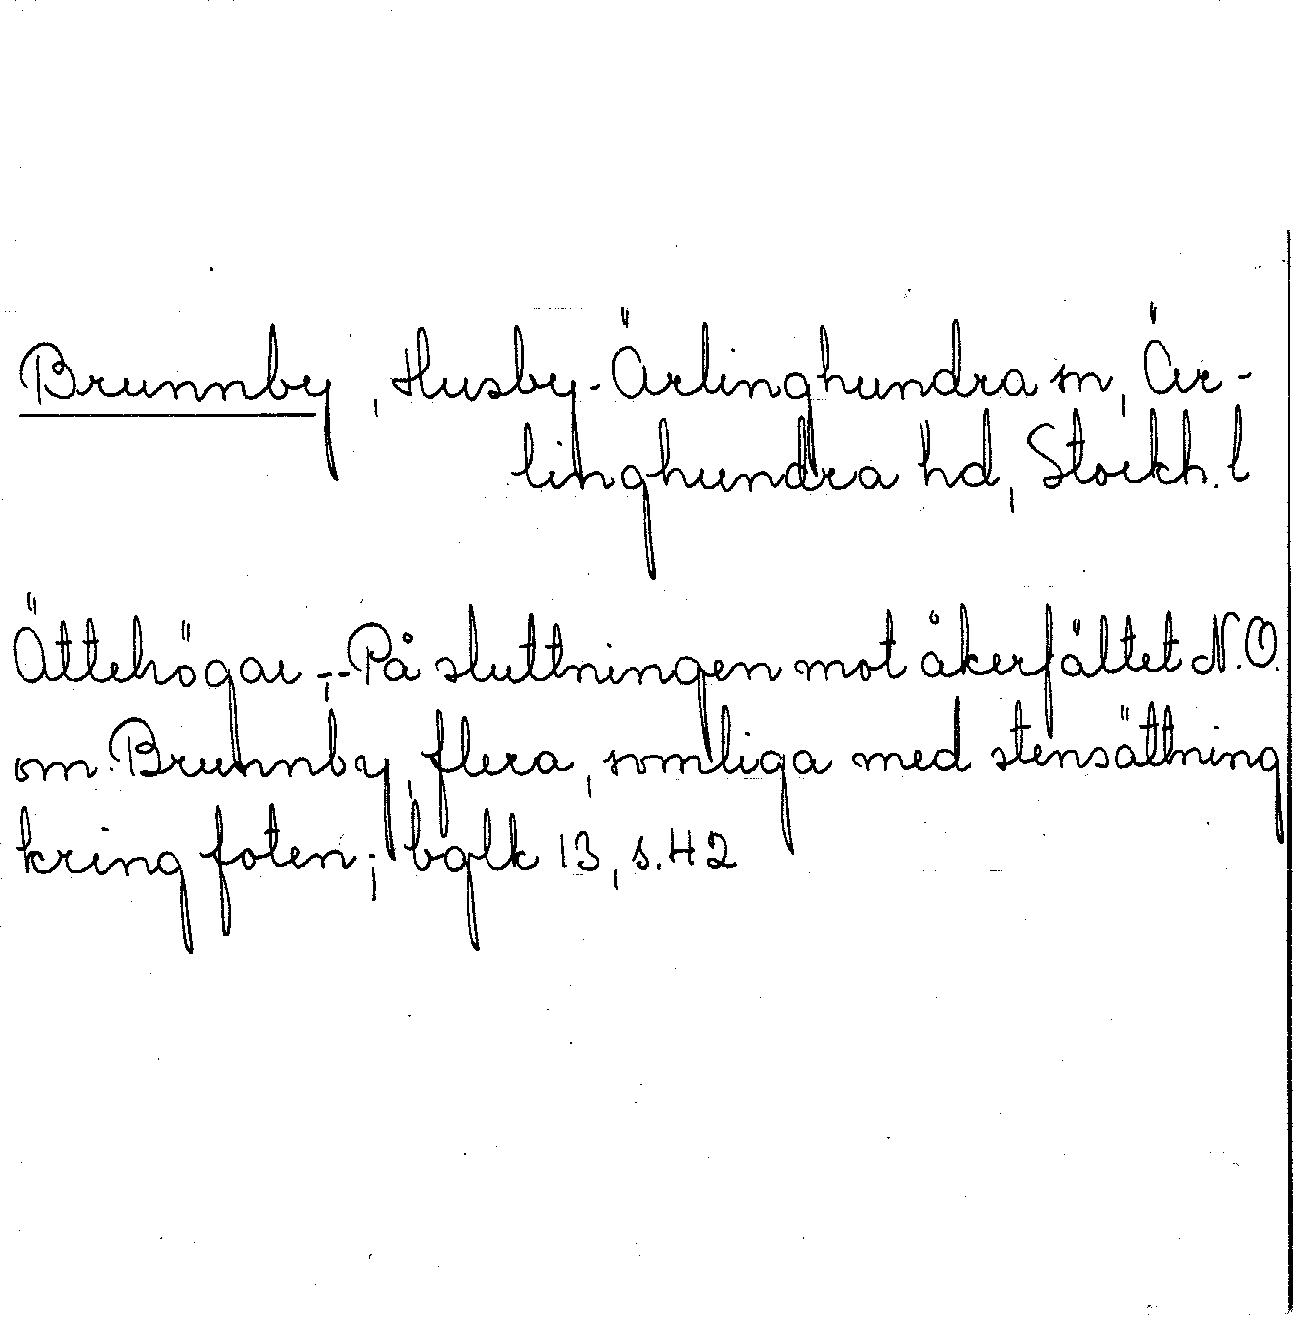 Brunnby, Husby-Ärlinghundra sn, Är-
linghundra hd, Stockh. l
Ättehögar -,- På sluttningen mot åkerfältet N.O.
om Brunnby, flera, somliga med stensättning
kring foten; bglk 13, s. 42